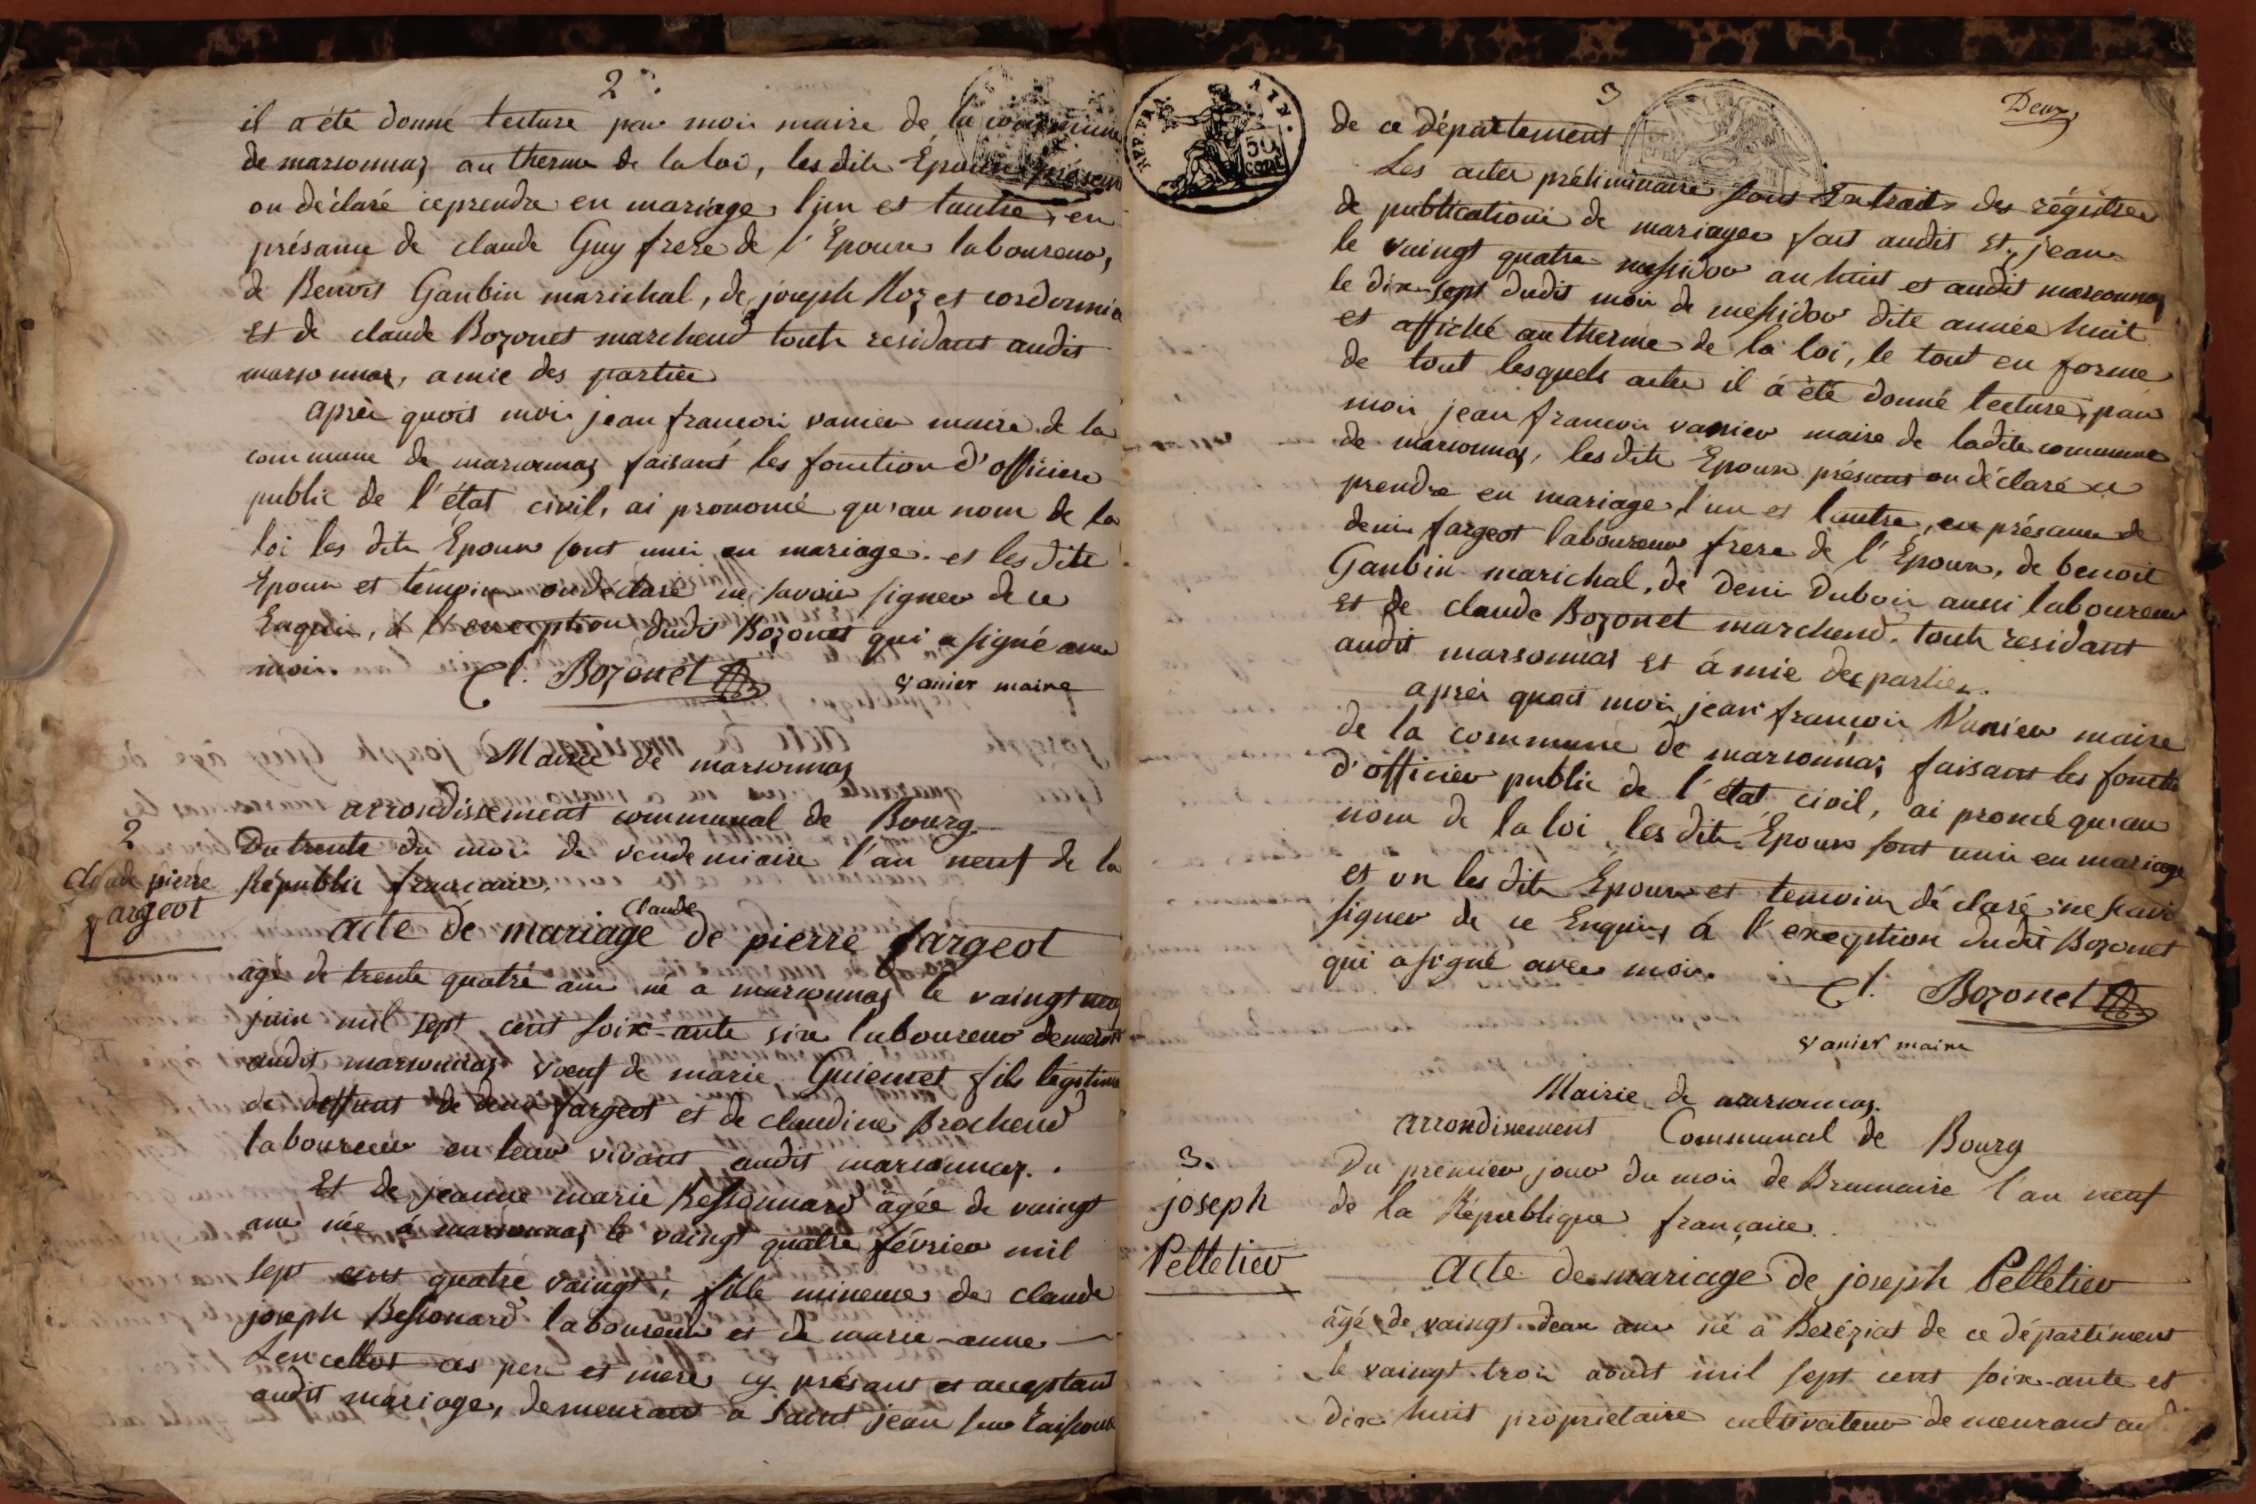 2
il a été donné lecture par moi maire de la commune
de marsonnas au therme de la loi, les dits Epoux présent
on déclaré ce prendre en mariage l'un et l'autre, en
présance de claude Guy frere de l'Epoux laboureur,
de Benoit Gaubin marichal, de joseph Roz et cordonnie
Et de claude Bozonet marchend touts residant audit
marsonnas, amie des partie
après quoit moi jean francoi vanier maire de la
commune de marsonnas faisant les fonction d'officier
public de l'état civil, ai prononcé qu'au nom de la
loi les dits Epoux sont uni en mariage. et les dits
Epoux et témoin on déclaré ne savoir signer de ce
Enquis, à l'exception dudit Bozonet qui a signé avec
moi.
Cl. Bozonet
vanier maire
Mairie de marsonnas
arrondissement communal de Bourg
2
Claude pierre
fargeot
Du trente du moi de vendemiaire l'an neuf de la
Républic francaise.
claude
acte de mariage de pierre fargeot
agé de trente quatre ans né a marsonnas le vaingt neuf
juin mil sept cent soix-ante six laboureur demeurt
audit marsonnas voeuf de marie Guiemet fils légitime
de deffunt de denis fargeot et de claudine Brochend
laboureur en leur vivant audit marsonnas.
Et de jeanne marie Bessonnard âgée de vaingt
ans née a marsonnas le vaingt quatre février mil
sept cens quatre vaingt, fille mineure de claude
joseph Bessonard laboureur et de marie-anne
Lencellot ces pere et mere cy présant et acceptant
audit mariage, demeurant a Saint jean sur Raissouse
3
Deux
REP. FRA.
AIN.
50
CENT.
de ce département
Les actes préliminaire sont Extrait des régistre
de publication de mariage fait audit St. jean
le vaingt quatre messidor an huit et audit marsonnas
le dix-sept dudit moi de messidor dite année huit
et affiché au therme de la loi, le tout en forme
de tout lesquels actes il a été donné lecture, par
moi jean francoi vanier maire de ladite commune
de marsonnas, les dits Epoux présent on déclaré ce
prendre en mariage l'un et l'autre, en présance de
deni fargeot laboureur frere de l'Epoux, de benoit
Gaubin marichal, de Deni Duboi aussi laboureur
Et de claude Bozonet marchend. touts residant
audit marsonnas et amie des parties.
après quoit moi jean françoi Vanier maire
de la commune de marsonnas faisant les fonctio
d'officier public de l'état civil, ai proncé qu'au
nom de la loi les dits Epoux sont uni en mariage
et on les dits Epoux et temoin déclaré ne savoi
signer de ce Enquis, à l'exception dudit Bozonet
qui a signé avec moi.
Cl. Bozonet
vanier maire
Mairie de marsonnas.
arrondissement Communal de Bourg
3.
joseph
Pelletier
Du premier jour du moi de Brumaire l'an neuf
de la République française.
Acte de mariage de joseph Pelletier
âgé de vaingt-deux ans né a Beréziat de ce département
le vaingt troi aoust mil sept cent soix-ante et
dix huit propriétaire cultivateur demeurant au